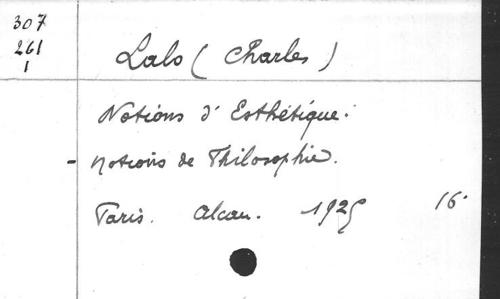 307
261
1
Lalo (Charles)
Notions d'Esthétique.
- Notions de Philosophie.
Paris. Alcan. 1925 16°